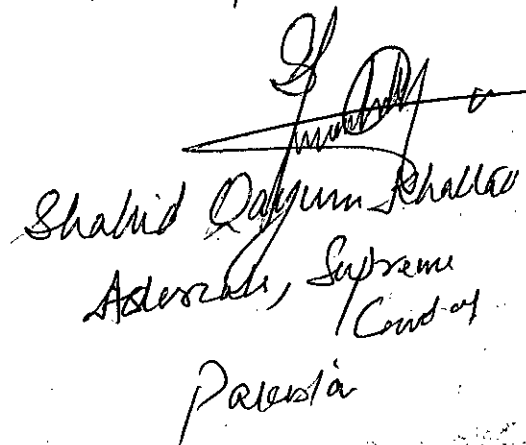 Shahid Qayyum Khattak
Advocate, Supreme
Court of
Pakistan